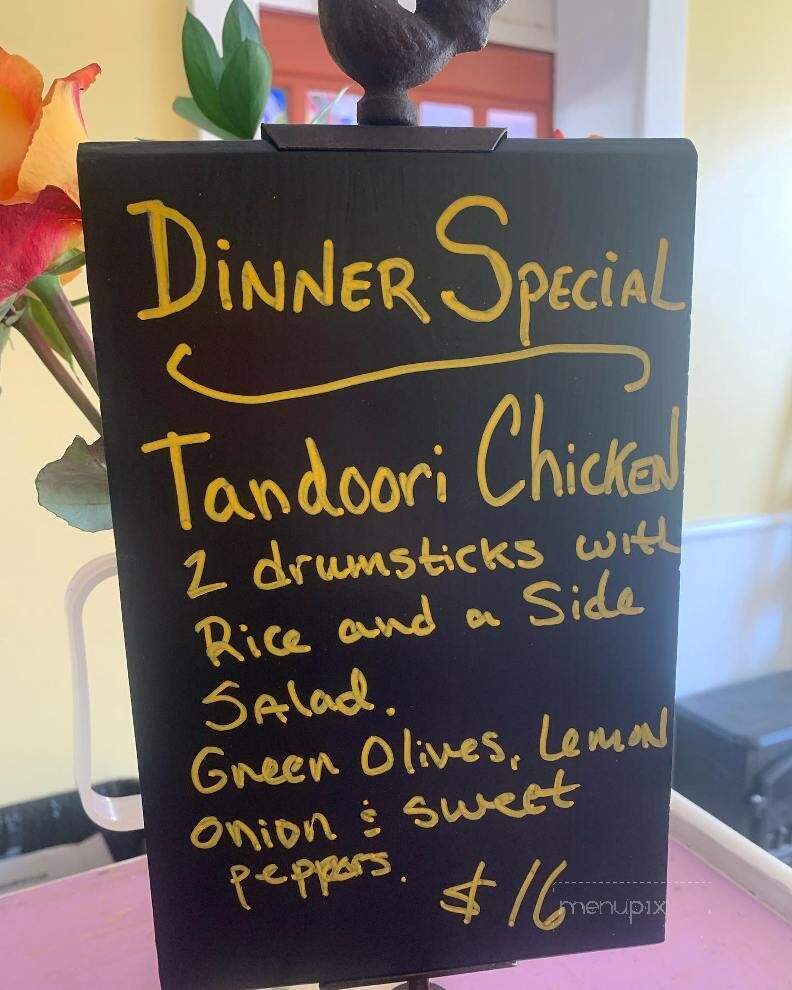 DiNNER SPECiAL
Tandoori ChicKEN
2 drumsticks with
Rice and a Side
SAlad.
Green Olives, LemoN
onion & sweet
peppers.
$16
menupix